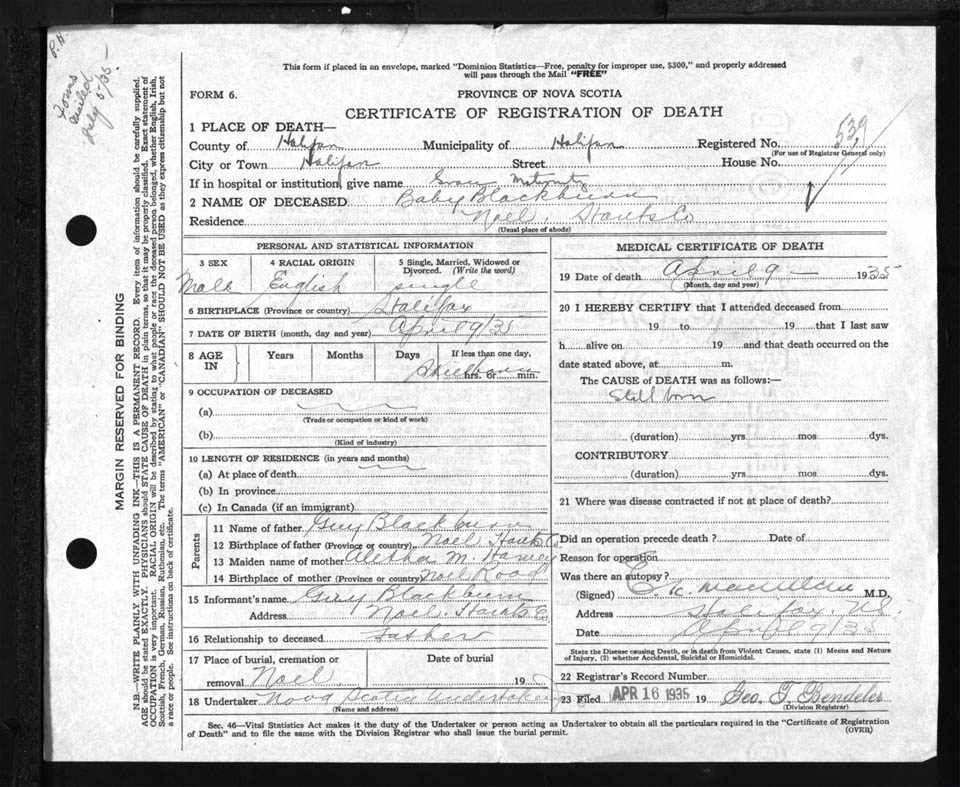 P.H.
Forms
mailed
July 5/35.
This form if placed in an envelope, marked "Dominion Statistics—Free, penalty for improper use, $300," and properly addressed
will pass through the Mail "FREE"
FORM 6.
PROVINCE OF NOVA SCOTIA
CERTIFICATE OF REGISTRATION OF DEATH
539
1 PLACE OF DEATH—
County of Halifax Municipality of Halifax Registered No.
(For use of Registrar General only)
City or Town Halifax Street House No.
If in hospital or institution, give name Grace Maternity
2 NAME OF DECEASED Baby Blackburn
Residence Noel, Hants Co
(Usual place of abode)
MARGIN RESERVED FOR BINDING
N.B.—WRITE PLAINLY WITH UNFADING INK—THIS IS A PERMANENT RECORD. Every item of information should be carefully supplied.
AGE should be stated EXACTLY. PHYSICIANS should STATE CAUSE OF DEATH in plain terms, so that it may be properly classified. Exact statement of
OCCUPATION is very important. RACIAL ORIGIN will be described by stating to what people or race the deceased person belonged, whether English, Irish,
Scottish, French, German, Russian, Ruthenian, etc. The terms "AMERICAN" or "CANADIAN" SHOULD NOT BE USED as they express citizenship but not
a race or people. See instructions on back of certificate.
PERSONAL AND STATISTICAL INFORMATION
3 SEX 4 RACIAL ORIGIN 5 Single, Married, Widowed or
Divorced. (Write the word)
Male English single
6 BIRTHPLACE (Province or country) Halifax
7 DATE OF BIRTH (month, day and year) April 9/35
8 AGE IN Years Months Days If less than one day,
hrs. or min.
Stillborn
9 OCCUPATION OF DECEASED
(a)
(Trade or occupation or kind of work)
(b)
(Kind of industry)
10 LENGTH OF RESIDENCE (in years and months)
(a) At place of death
(b) In province
(c) In Canada (if an immigrant)
Parents
11 Name of father Guy Blackburn
12 Birthplace of father (Province or country) Noel Hants Co
13 Maiden name of mother Alethea M. Harvey
14 Birthplace of mother (Province or country) Noel Road
15 Informant's name Guy Blackburn
Address Noel, Hants Co
16 Relationship to deceased Father
17 Place of burial, cremation or Date of burial
removal Noel 19
18 Undertaker Nova Scotia Undertaking
(Name and address)
MEDICAL CERTIFICATE OF DEATH
19 Date of death April 9 — 1935
(Month, day and year)
20 I HEREBY CERTIFY that I attended deceased from
19 to 19 that I last saw
h alive on 19 and that death occurred on the
date stated above, at m.
The CAUSE of DEATH was as follows:—
Still born
(duration) yrs mos dys.
CONTRIBUTORY
(duration) yrs mos dys.
21 Where was disease contracted if not at place of death?
Did an operation precede death? Date of
Reason for operation
Was there an autopsy?
(Signed) M.D.
Address Halifax, N.S.
Date April 9/35
State the Disease causing Death, or in death from Violent Causes, state (1) Means and Nature
of Injury, (2) whether Accidental, Suicidal or Homicidal.
22 Registrar's Record Number
23 Filed APR 16 1935 19 Geo. T. Bendeler
(Division Registrar)
Sec. 46—Vital Statistics Act makes it the duty of the Undertaker or person acting as Undertaker to obtain all the particulars required in the "Certificate of Registration
of Death" and to file the same with the Division Registrar who shall issue the burial permit. (OVER)